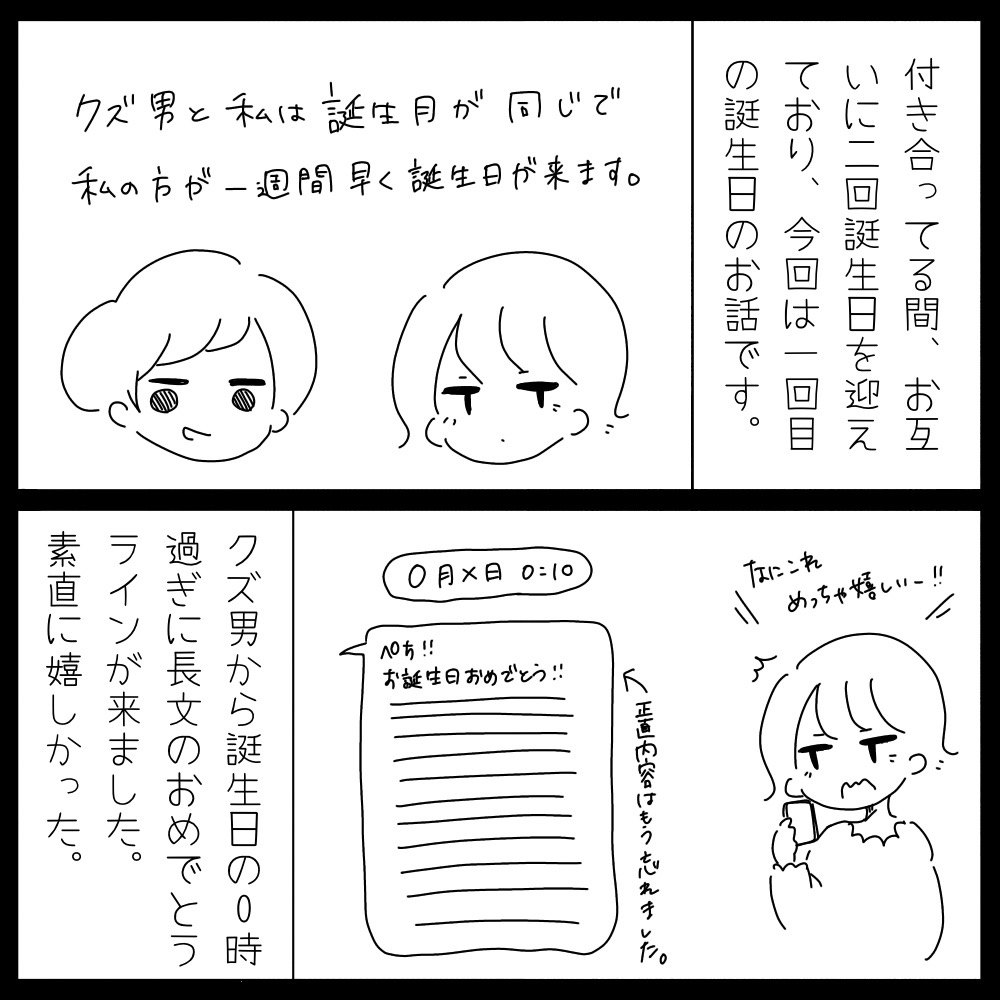 付き合ってる間、お互
いに二回誕生日を迎え
ており、今回は一回目
の誕生日のお話です。
クズ男と私は誕生月が同じで
私の方が一週間早く誕生日が来ます。
なにこれ
めっちゃ嬉しいー!!
0月×日 0:10
ぺち!!
お誕生日おめでとう!!
正直内容はもう忘れました。
クズ男から誕生日の0時
過ぎに長文のおめでとう
ラインが来ました。
素直に嬉しかった。